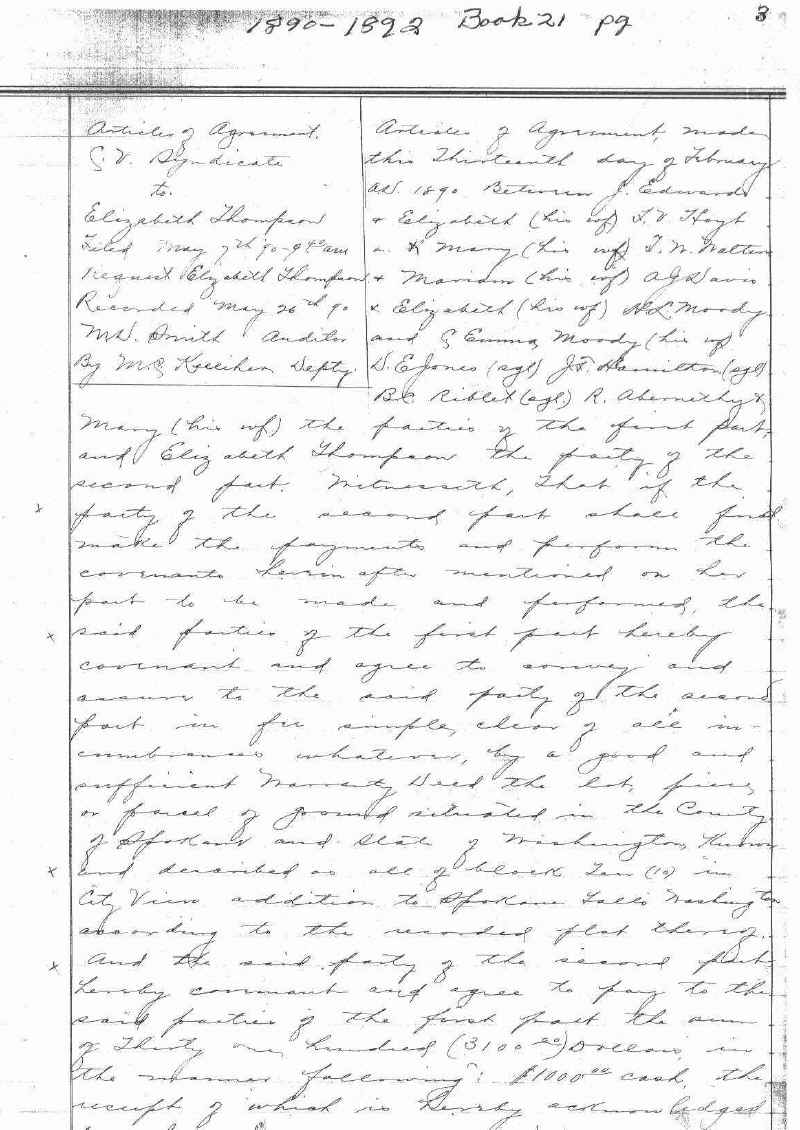 1890-1892 Book 21 pg 3
Articles of Agreement.
C. V. Syndicate
to.
Elizabeth Thompson
Filed May 7th 90-9 40 am
Request Elizabeth Thompson
Recorded May 26th 90
M.W. Smith Auditor
By M.C. Depty.
Articles of Agreement, made
this Thirteenth day of February
AD. 1890 Between J. Edwards
& Elizabeth (his wf) F. V Hoyt
& Mary (his wf) T. W. Watters
& Mariam (his wf) A J Davis
& Elizabeth (his wf) H L. Moody
and Emma Moody (his wf)
D. E Jones (sgl) J. F. Hamilton (sgl)
B C Riblet (sgl) R. Abernethy &
Mary (his wf) the parties of the first part,
and Elizabeth Thompson the party of the
second part. Witnesseth, That if the
party of the second part shall first
make the payments and perform the
covenants herin after mentioned on her
part to be made and performed, the
said parties of the first part hereby
covenant and agree to convey and
assure to the said party of the second
part in fee simple, clear of all in-
cumbrances whatever, by a good and
sufficient Warranty Deed the lot, piece,
or parcel of ground situated in the County
of Spokane and State of Washington, Known
and described as all of block Ten (10) in
City View addition to Spokane Falls Washington
according to the recorded plat thereof.
And the said party of the second part
hereby covenant and agree to pay to the
said parties of the first part the sum
of Thirty one hundred (3100 00) Dollars in
the manner following: $1000 00 cash, the
receipt of which is hereby acknowledged